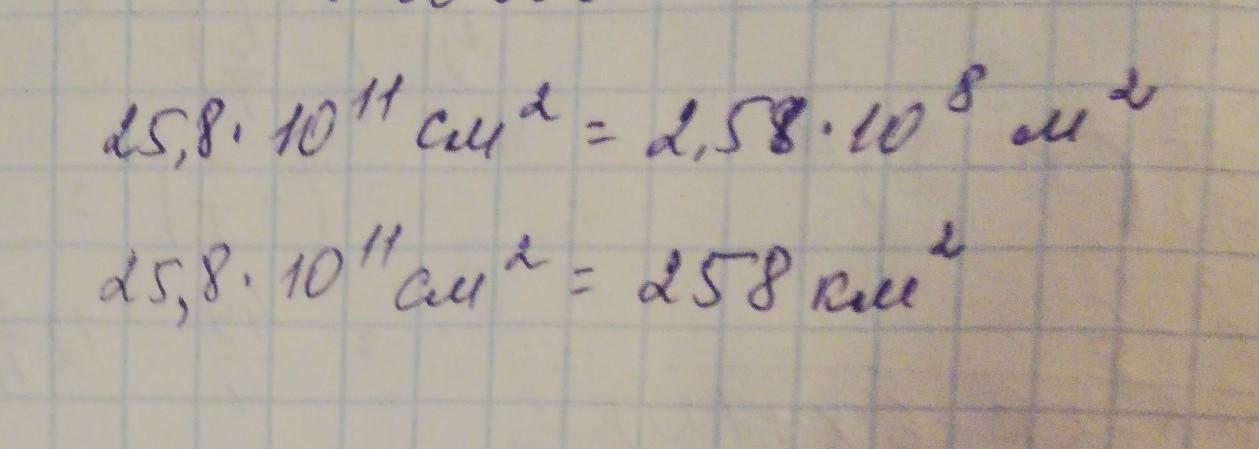 25,8 · 10¹¹ см² = 2,58 · 10⁸ м²
25,8 · 10¹¹ см² = 258 км²